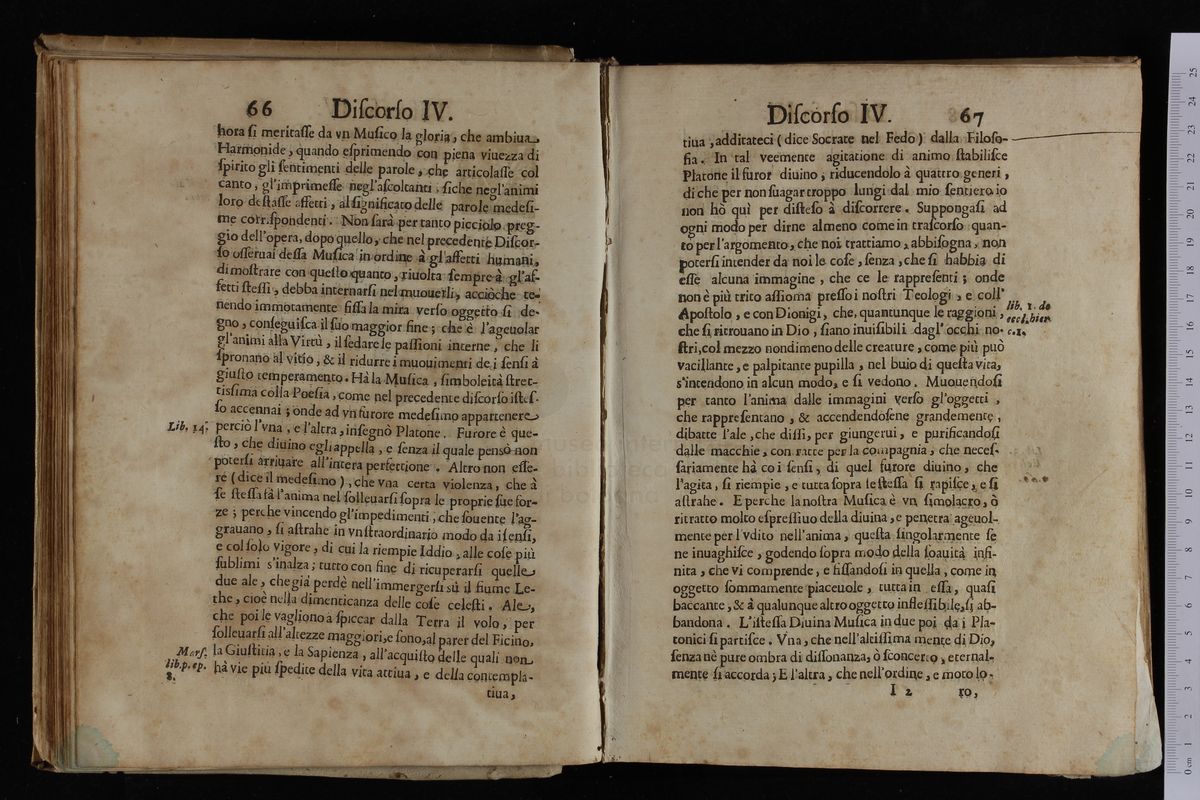 66 Diſcorſo IV.
hora ſi meritaſſe da vn Muſico la gloria, che ambiua
Harmonide, quando eſprimendo con piena viuezza di
ſpirito gli ſentimenti delle parole, che articolaſſe col
canto, gl'imprimeſſe negl'aſcoltanti; ſiche negl'animi
loro deſtaſſe affetti, al ſignificato delle parole medeſi-
me corriſpondenti. Non ſarà per tanto picciolo preg-
gio dell'opera, dopo quello, che nel precedente Diſcor-
ſo oſſeruai deſſa Muſica in ordine à gl'affetti humani,
dimoſtrare con queſto quanto, riuolta ſempre à gl'af-
fetti ſteſſi, debba internarſi nel muouerli, acciòche te-
nendo immotamente fiſſa la mira verſo oggetto ſi de-
gno, conſeguiſca il ſuo maggior fine; che è l'ageuolar
gl'animi alla Virtù, il ſedare le paſſioni interne, che li
ſpronano al vitio, & il ridurre i muouimenti de i ſenſi à
giuſto temperamento. Hà la Muſica, ſimboleità ſtret-
tiſſima colla Poeſia, come nel precedente diſcorſo iſteſ-
ſo accennai; onde ad vn furore medeſimo appartenere
Lib. 14. perciò l'vna, e l'altra, inſegnò Platone. Furore è que-
ſto, che diuino egli appella, e ſenza il quale pensò non
poterſi arriuare all'intera perfettione. Altro non eſſe-
re (dice il medeſimo), che vna certa violenza, che à
ſe ſteſſa fà l'anima nel ſolleuarſi ſopra le proprie ſue for-
ze; perche vincendo gl'impedimenti, che ſouente l'ag-
grauano, ſi aſtrahe in vn ſtraordinario modo da i ſenſi,
e col ſolo vigore, di cui la riempie Iddio, alle coſe più
ſublimi s'inalza; tutto con fine di ricuperarſi quelle
due ale, che già perdè nell'immergerſi sù il fiume Le-
the, cioè nella dimenticanza delle coſe celeſti. Ale,
che poi le vagliono à ſpiccar dalla Terra il volo, per
ſolleuarſi all'altezze maggiori, e ſono, al parer del Ficino,
Marſ. la Giuſtitia, e la Sapienza, all'acquiſto delle quali non
lib. p. ep. hà vie più ſpedite della vita attiua, e della contempla-
8.
tiua,
Diſcorſo IV. 67
tiua, additateci (dice Socrate nel Fedo) dalla Filoſo-
fia. In tal veemente agitatione di animo ſtabiliſce
Platone il furor diuino, riducendolo à quattro generi,
di che per non ſuagar troppo lungi dal mio ſentiero io
non hò quì per diſteſo à diſcorrere. Suppongaſi ad
ogni modo per dirne almeno come in traſcorſo quan-
to per l'argomento, che noi trattiamo, abbiſogna, non
poterſi intender da noi le coſe, ſenza, che ſi habbia di
eſſe alcuna immagine, che ce le rappreſenti; onde
non è più trito aſſioma preſſo i noſtri Teologi, e coll'
Apoſtolo, e con Dionigi, che, quantunque le raggioni,
lib. 1. de
eccl. hier
c. 1.
che ſi ritrouano in Dio, ſiano inuiſibili dagl'occhi no-
ſtri, col mezzo nondimeno delle creature, come più può
vacillante, e palpitante pupilla, nel buio di queſta vita,
s'intendono in alcun modo, e ſi vedono. Muouendoſi
per tanto l'anima dalle immagini verſo gl'oggetti,
che rappreſentano, & accendendoſene grandemente,
dibatte l'ale, che diſſi, per giungerui, e purificandoſi
dalle macchie, contratte per la compagnia, che neceſ-
ſariamente hà co i ſenſi, di quel furore diuino, che
l'agita, ſi riempie, e tutta ſopra ſe ſteſſa ſi rapiſce, e ſi
aſtrahe. E perche la noſtra Muſica è vn ſimolacro, ò
ritratto molto eſpreſſiuo della diuina, e penetra ageuol-
mente per l'vdito nell'anima, queſta ſingolarmente ſe
ne inuaghiſce, godendo ſopra modo della ſoauità infi-
nita, che vi comprende, e fiſſandoſi in quella, come in
oggetto ſommamente piaceuole, tutta in eſſa, quaſi
baccante, & à qualunque altro oggetto infleſſibile, ſi ab-
bandona. L'iſteſſa Diuina Muſica in due poi da i Pla-
tonici ſi partiſce. Vna, che nell'altiſſima mente di Dio,
ſenza nè pure ombra di diſſonanza, ò ſconcerto, eternal-
mente ſi accorda; E l'altra, che nell'ordine, e moto lo-
I 2 ro,